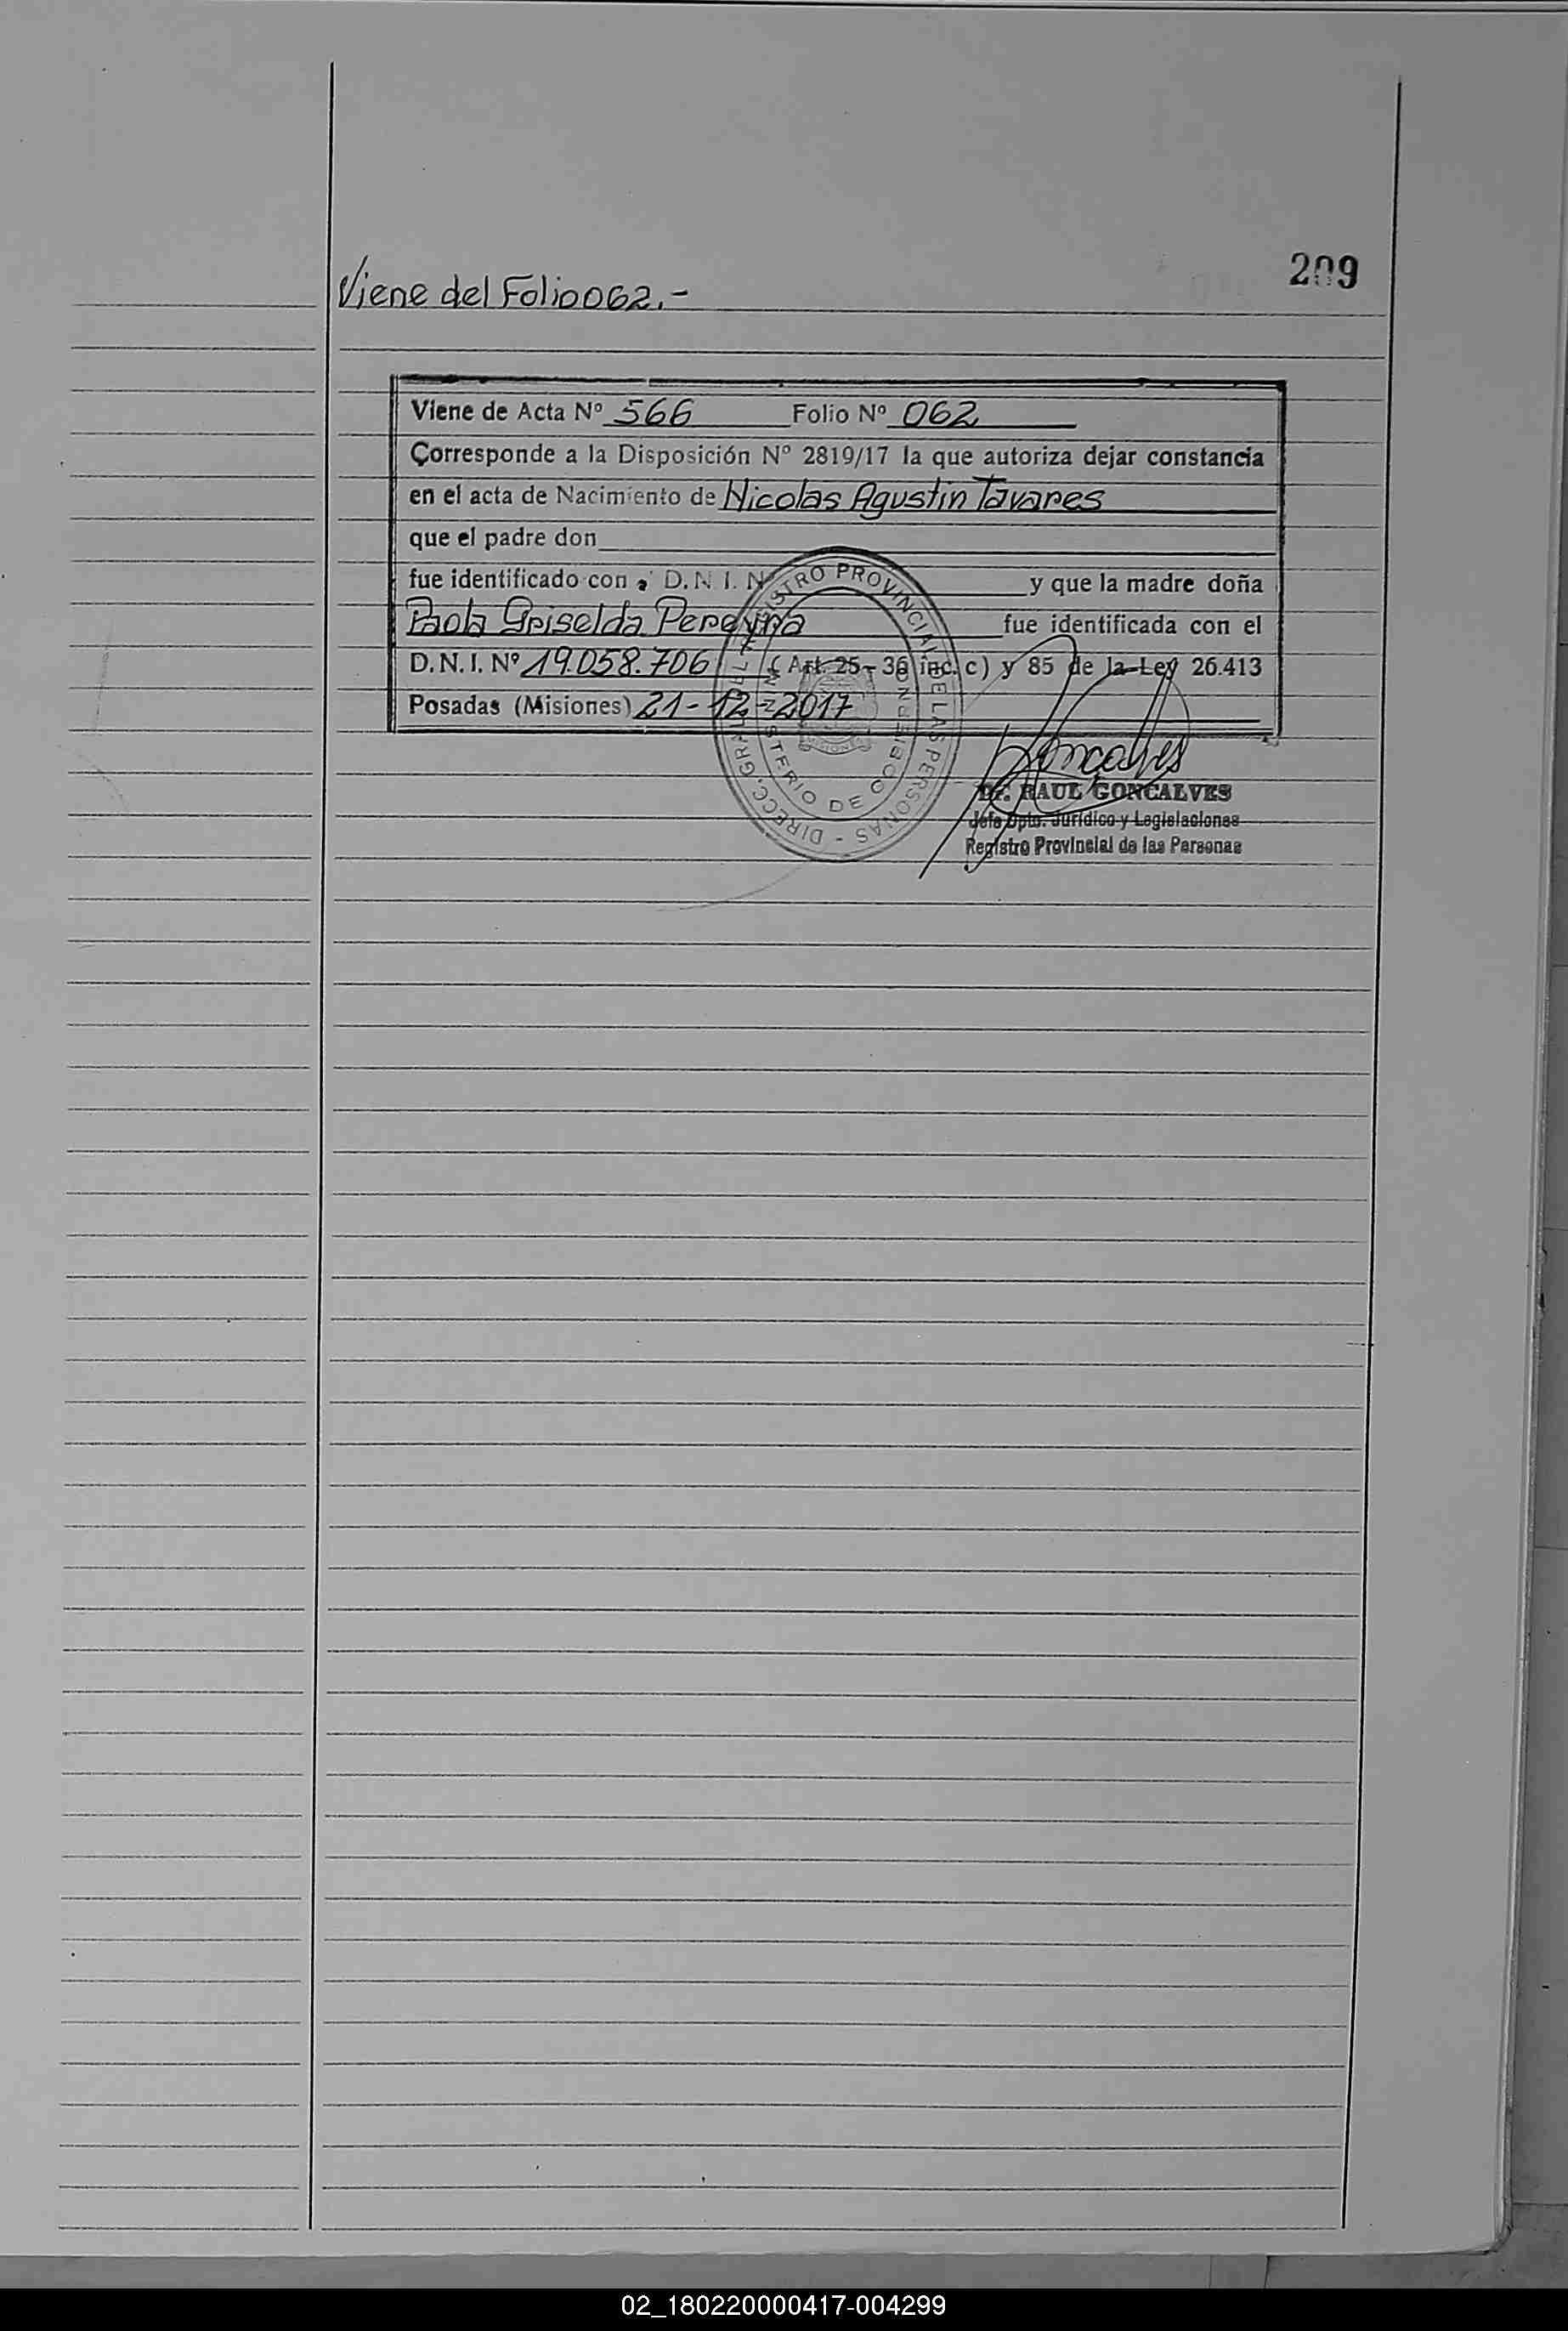 209
Viene del Folio 062.-
Viene de Acta Nº 566 Folio Nº 062
Corresponde a la Disposición Nº 2819/17 la que autoriza dejar constancia
en el acta de Nacimiento de Nicolas Agustin Tavares
que el padre don
fue identificado con D. N. I. Nº y que la madre doña
Paola Griselda Pereyra fue identificada con el
D. N. I. Nº 19.058.706 (Art. 25 - 36 inc. c) y 85 de la Ley 26.413
Posadas (Misiones) 21-12-2017
DIRECC. GRAL. DEL REGISTRO PROVINCIAL DE LAS PERSONAS -
MINISTERIO DE GOBIERNO
MISIONES
Goncalves
Dr. RAUL GONCALVES
Jefe Dpto. Jurídico y Legislaciones
Registro Provincial de las Personas
02_180220000417-004299